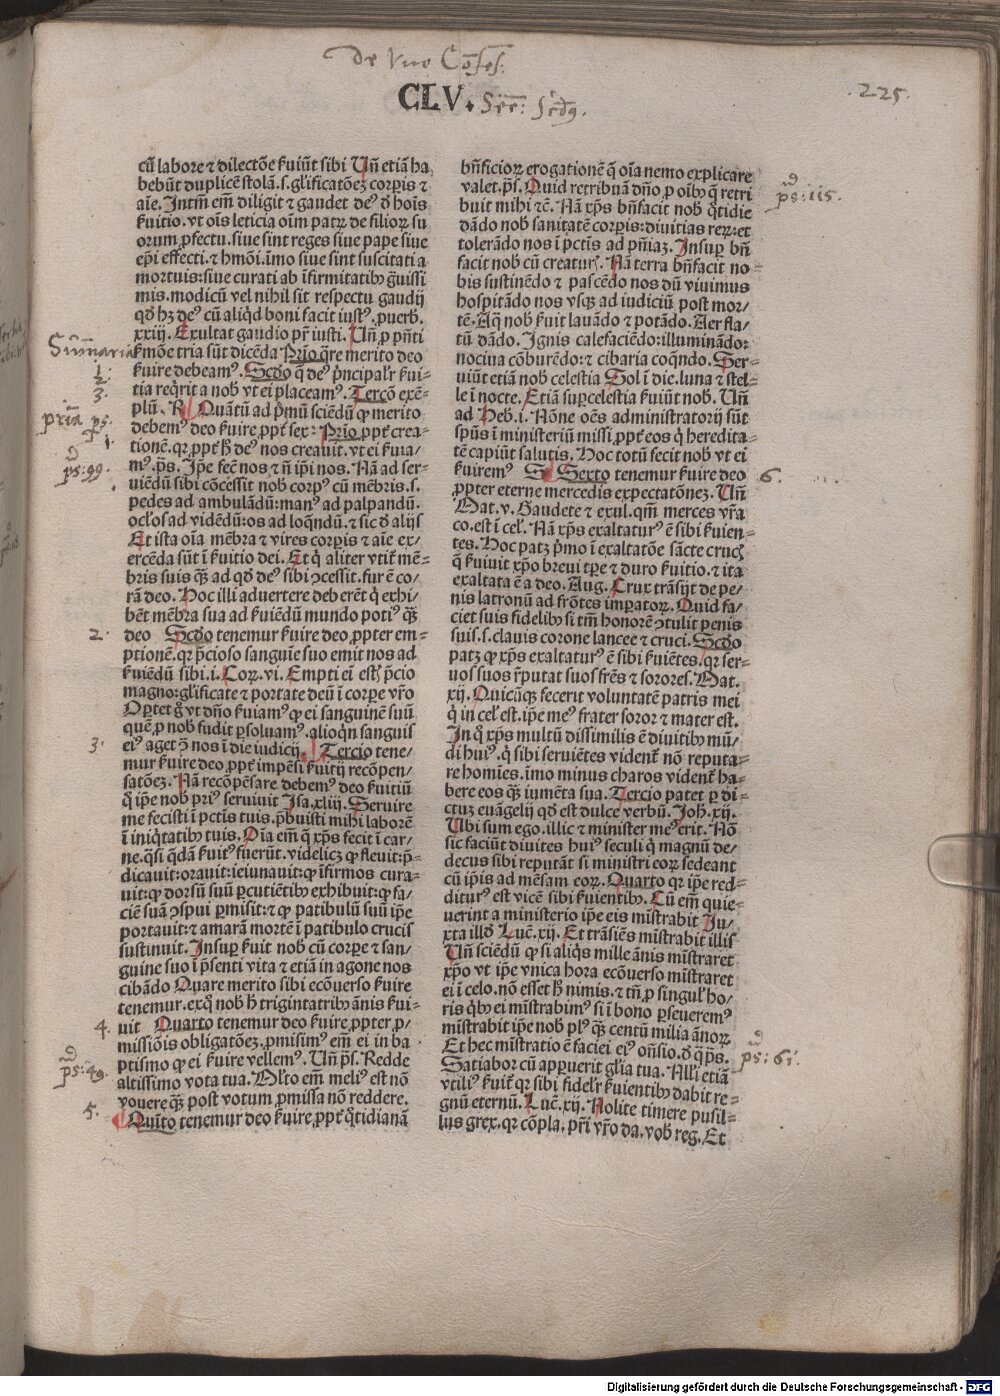 de vno Cōfes:
CLV. Sc̄e: Scd9.
225.
cū labore ⁊ dilectōe ẜuiūt sibi Un̄ etiā ha
bebūt duplicē stolā.s.gl̓ificatōeꝫ corꝑis ⁊
aīe. Intm̄ em̄ diligit ⁊ gaudet deꝰ ð hoīs
ẜuitio.vt oīs leticia oīm patꝝ de filioꝝ su
orum ꝓfectu.siue sint reges siue pape siue
ep̄i effecti.⁊ hmōi.īmo siue sint suscitati a
mortuis:siue curati ab īfirmitatibꝰ g̃uissi
mis.modicū vel nihil sit respectu gaudij
qð hꝫ deꝰ cū aliqd boni facit iustꝰ.ꝓuerb.
xxiij. Exultat gaudio pr̄ iusti. Un̄ ꝓ pn̄ti
Sūmaria
ẜmōe tria sūt dicēda Prīo q̄re merito deo
1.
ẜuire debeamꝰ. Scðo q̄ deꝰ pͥncipalr̓ ẜui-
2.
tia reqͥrit a nob̓ vt ei placeamꝰ. Tercō exē-
3.
plū. R̓ Quātū ad pͥmū sciēdū ꝙ merito
prīa ps.
debemꝰ deo ẜuire ꝓpt̓ sex: Prīo ꝓpt̓ crea-
1.
tionē.qꝛ ꝓpt̓ h̓ deꝰ nos creauit.vt ei ẜuia-
ps:99.
mꝰ.p̄s. Ip̄e fec̄ nos ⁊ n̄ ip̄i nos. Nā ad ser-
uiēdū sibi cōcessit nob̓ corpꝰ cū mēbris.s.
pedes ad ambulādū:manꝰ ad palpandū.
ocl̓os ad vidēdū:os ad loqͣndū.⁊ sic ð alijs
Et ista oīa mēbra ⁊ vires corꝑis ⁊ aīe ex/
ercēda sūt ī ẜuitio dei. Et qͥ aliter vtit̓ mē-
bris suis qͣꝫ ad qð deꝰ sibi ↄcessit.fur ē co/
rā deo. Hoc illi aduertere deberēt qͥ exhi-
bēt mēbra sua ad ẜuiēdū mundo potiꝰ qͣꝫ
2.
deo Scðo tenemur ẜuire deo ꝓpter em-
ptionē.qꝛ pͥcioso sanguīe suo emit nos ad
ẜuiēdū sibi.i. Coꝝ.vi. Empti ei estꝭ pͥcio
magno:gl̓ificate ⁊ portate deū ī corꝑe vr̄o
Oꝑtet gͦ vt dn̄o ẜuiamꝰ ꝙ ei sanguinē suū
quē ꝓ nob̓ fudit ꝑsoluamꝰ.alioqͥn sanguis
3.
eiꝰ aget ↄ̄ nos ī die iudicij. Tercio tene-
mur ẜuire deo ꝓpt̓ impēsi ẜuitij recōpen/
satōeꝫ. Nā recōpēsare debemꝰ deo ẜuitiū
qͥ ip̄e nob̓ priꝰ seruiuit Isa.xliij. Seruire
me fecisti ī pctīs tuis.p̄buisti mihi laborē
ī iniqͥtatibꝰ tuis. Oīa em̄ q̄ xp̄s fecit ī car/
ne.qͣsi qͣdā ẜuitꝰ fuerūt.videlicꝫ ꝙ fleuit:p̄-
dicauit:orauit:ieiunauit:ꝙ īfirmos cura-
uit:ꝙ dorsū suū ꝑcutiētibꝰ exhibuit:ꝙ fa/
ciē suā ↄspui ꝑmisit:⁊ ꝙ patibulū suū ip̄e
portauit:⁊ amarā mortē ī patibulo crucis
sustinuit. Insuꝑ ẜuit nob̓ cū corꝑe ⁊ san/
guine suo ī pn̄senti vita ⁊ etiā in agone nos
cibādo Quare merito sibi ecōuerso ẜuire
tenemur.exqͦ nob̓ h̓ trigintatribꝰ ānis ẜui-
4.
uit Quarto tenemur deo ẜuire ꝓpter ꝓ/
missiōis obligatōeꝫ.ꝓmisimꝰ em̄ ei in ba
ps:49.
ptismo ꝙ ei ẜuire vellemꝰ. Un̄ ps̄. Redde
altissimo vota tua. Ml̓to em̄ meliꝰ est nō
5.
vouere qͣꝫ post votum ꝓmissa nō reddere.
Quīto tenemur deo ẜuire ꝓpt̓ qͦtidianā
bn̄ficioꝝ erogationē q̄ oīa nemo explicare
valet.ps̄. Quid retribuā dn̄o ꝓ oībꝰ q̄ retri
ps:115.
buit mihi ⁊c̄. Nā xp̄s bn̄facit nob̓ qͦtidie
dādo nob̓ sanitatē corꝑis:diuitias reꝝ:et
tolerādo nos ī pctīs ad pn̄iaꝫ. Insuꝑ bn̄
facit nob̓ cū creaturꝭ. Nā terra bn̄facit no-
bis sustinēdo ⁊ pascēdo nos dū viuimus
hospitādo nos vsqꝫ ad iudiciū post mor/
tē. Aq̄ nob̓ ẜuit lauādo ⁊ potādo. Aer fla-
tū dādo. Ignis calefaciēdo:illuminādo:
nociua cōburēdo:⁊ cibaria coqͣndo. Ser-
uiūt etiā nob̓ celestia Sol ī die.luna ⁊ stel-
le ī nocte. Etiā suꝑcelestia ẜuiūt nob̓. Un̄
ad Heb̓.i. Nōne oēs administratorij sūt
spūs ī ministeriū missi ꝓpt̓ eos qͥ heredita-
tē capiūt salutis. Hoc totū fecit nob̓ vt ei
ẜuiremꝰ Sexto tenemur ẜuire deo
6.
ꝓpter eterne mercedis expectatōneꝫ. Un̄
Mat.v. Gaudete ⁊ exul.qm̄ merces vr̄a
co.est ī cel̓. Nā xp̄s exaltaturꝰ ē sibi ẜuien-
tes. Hoc patꝫ pͥmo ī exaltatōe sācte crucꝭ
q̄ ẜuiuit xp̄o breui tꝑe ⁊ duro ẜuitio.⁊ ita
exaltata ē a deo. Aug. Crux trāsijt de pe/
nis latronū ad frōtes imꝑatoꝝ. Quid fa/
ciet suis fidelibꝰ si tm̄ honorē ↄtulit penis
suis.s.clauis corone lancee ⁊ cruci. Scðo
patꝫ ꝙ xp̄s exaltaturꝰ ē sibi ẜuiētes.qꝛ ser-
uos suos r̄putat suos fr̄es ⁊ sorores. Mat.
xij. Quicūqꝫ fecerit voluntatē patris mei
qͥ in cel̓ est.ip̄e meꝰ frater soror ⁊ mater est.
In qͦ xp̄s multū dissimilis ē diuitibꝰ mū/
di huiꝰ.qͥ sibi seruiētes vident̓ nō reputa-
re homīes.īmo minus charos vident̓ ha/
bere eos qͣꝫ iumēta sua. Tercio patet ꝑ di-
ctuꝫ euāgelij qð est dulce verbū. Joh̓.xij.
Ubi sum ego.illic ⁊ minister meꝰ erit. Nō
sic faciūt diuites huiꝰ seculi qͥ magnū de/
decus sibi reputāt si ministri eoꝝ sedeant
cū ip̄is ad mēsam eoꝝ. Quarto qꝛ ip̄e red-
diturꝰ est vicē sibi ẜuientibꝰ. Cū em̄ quie-
uerint a ministerio ip̄e eis mīstrabit Ju/
xta illð Luc̄.xij. Et trāsiēs mīstrabit illis
Un̄ sciēdū ꝙ si aliqͥs mille ānis mīstraret
xp̄o vt ip̄e vnica hora ecōuerso mīstraret
ei ī celo.nō esset h̓ nimis.⁊ tn̄ ꝓ singul̓ ho/
ris qͥbꝰ ei mīstrabimꝰ si ī bono ꝑseueremꝰ
mīstrabit ip̄e nob̓ plꝰ qͣꝫ centū milia ānoꝝ
Et hec mīstratio ē faciei eiꝰ on̄sio.ð q̄ ps̄.
ps:61.
Satiabor cū apꝑuerit gl̓ia tua. All̓i etiā
vtiliꝰ ẜuit̓ qꝛ sibi fidelr̓ ẜuientibꝰ dabit re-
gnū eternū. Luc̄.xij. Nolite timere pusil-
lus grex.qꝛ cōpla.pr̄i vr̄o da.vob̓ reg. Et
Digitalisierung gefördert durch die Deutsche Forschungsgemeinschaft - DFG